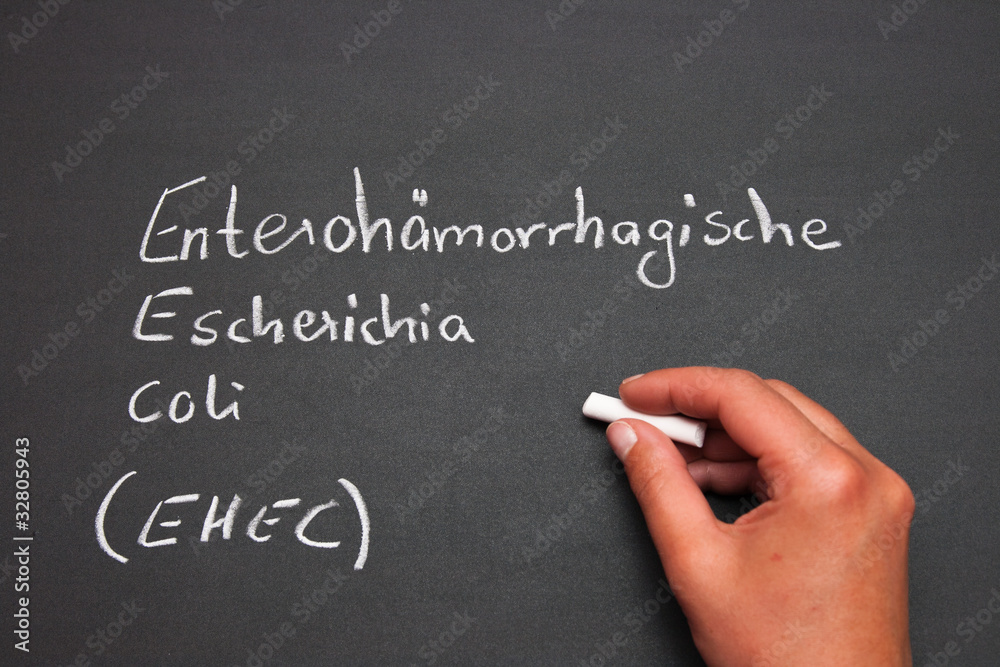 Enterohämorrhagische
Escherichia
Coli
(EHEC)
Adobe Stock | #32805943